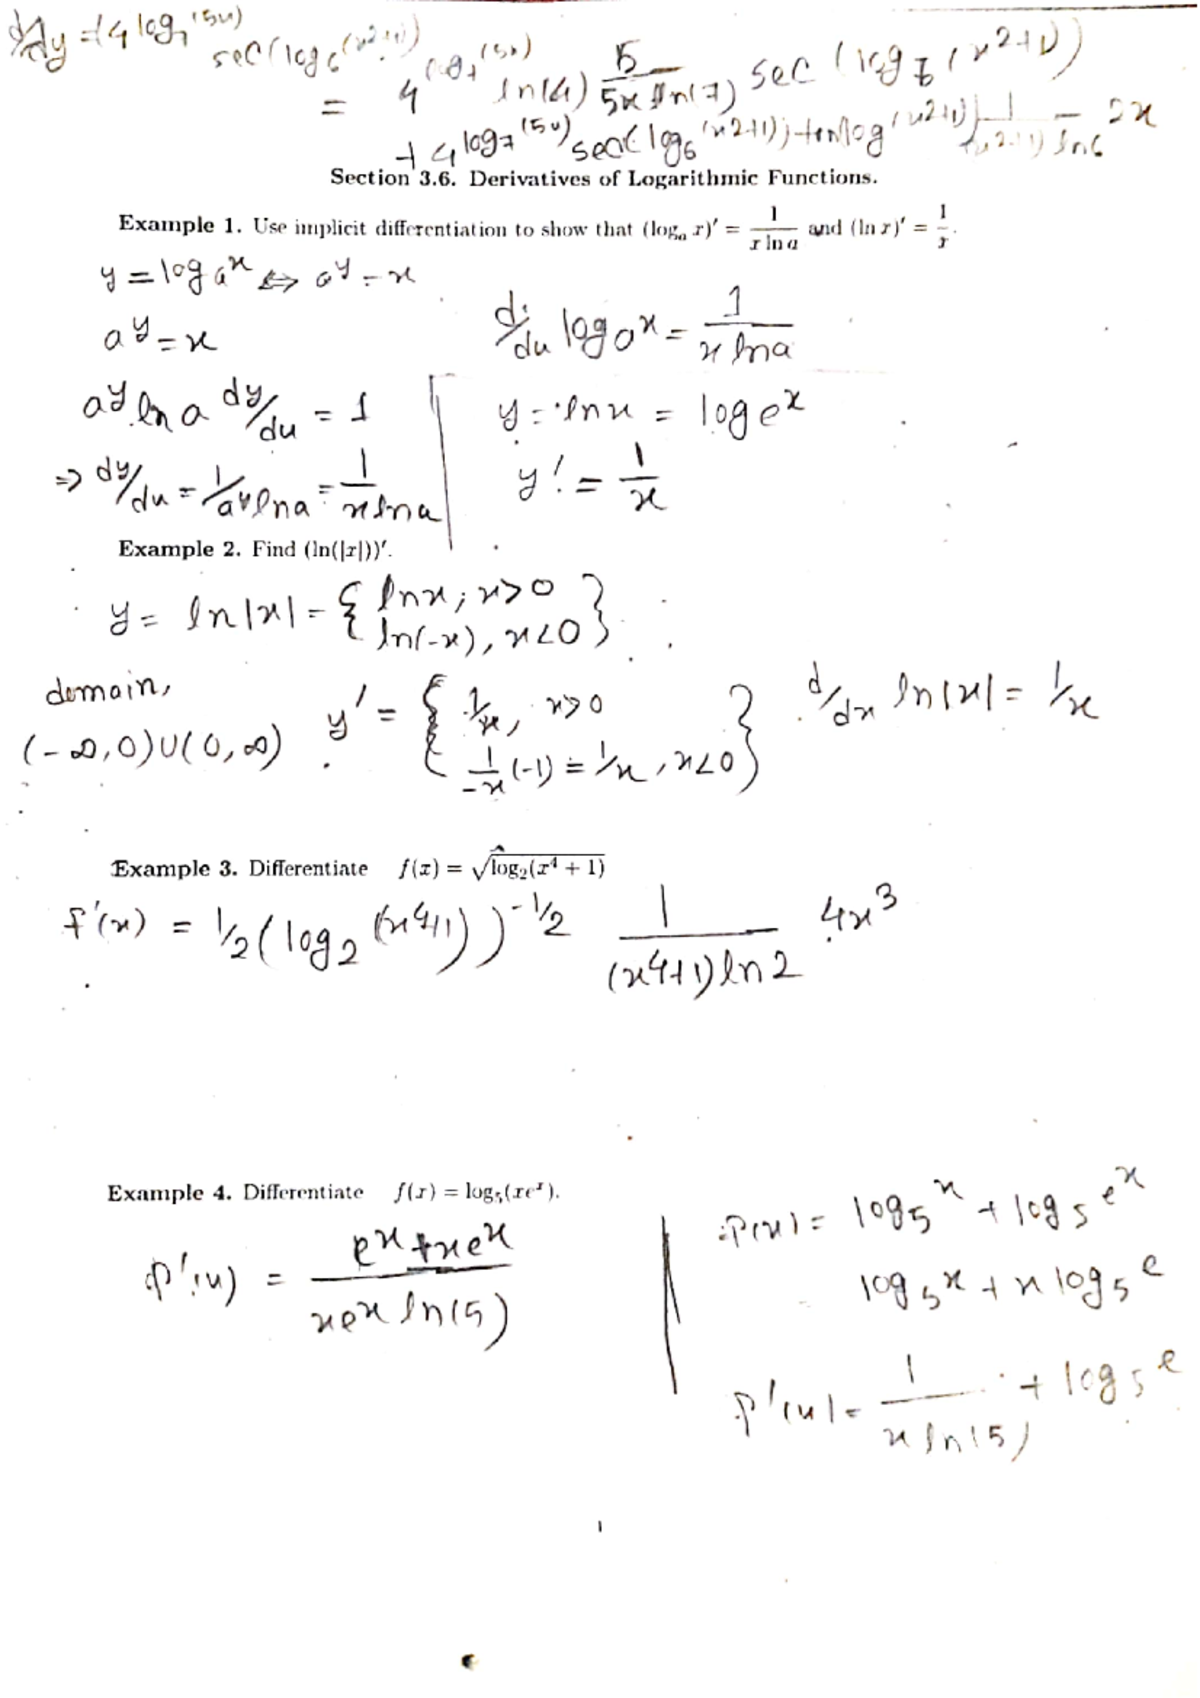 d/dy = 4^log₇(5x) sec(log₆(x²+1))
= 4^log₇(5x) ln(4) 5/(5x ln(7)) sec(log₆(x²+1))
+ 4^log₇(5x) sec(log₆(x²+1)) tan(log(x²+1)) 1/((x²+1) ln6) 2x
Section 3.6. Derivatives of Logarithmic Functions.
Example 1. Use implicit differentiation to show that (logₐ x)′ = 1/(x ln a) and (ln x)′ = 1/x.
y = log a^x ⇔ a^y = x
a^y = x
d/dx log a^x = 1/(x ln a)
a^y ln a dy/dx = 1
y = ln x = log e^x
⇒ dy/dx = 1/(a^y ln a) = 1/(x ln a)
y' = 1/x
Example 2. Find (ln(|x|))′.
y = ln|x| = { ln x, x>0
ln(-x), x<0 }
domain,
(-∞,0)∪(0,∞)
y' = { 1/x, x>0
1/-x (-1) = 1/x, x<0 }
d/dx ln|x| = 1/x
Example 3. Differentiate f(x) = √(log₂(x⁴ + 1))
f'(x) = 1/2 (log₂(x⁴+1))^(-1/2) 1/((x⁴+1) ln 2) 4x³
Example 4. Differentiate f(x) = log₅(xeˣ).
f'(x) = (e^x + xe^x)/(xe^x ln(5))
f(x) = log₅^x + log₅^e^x
log₅^x + x log₅^e
f'(x) = 1/(x ln(5)) + log₅^e
1